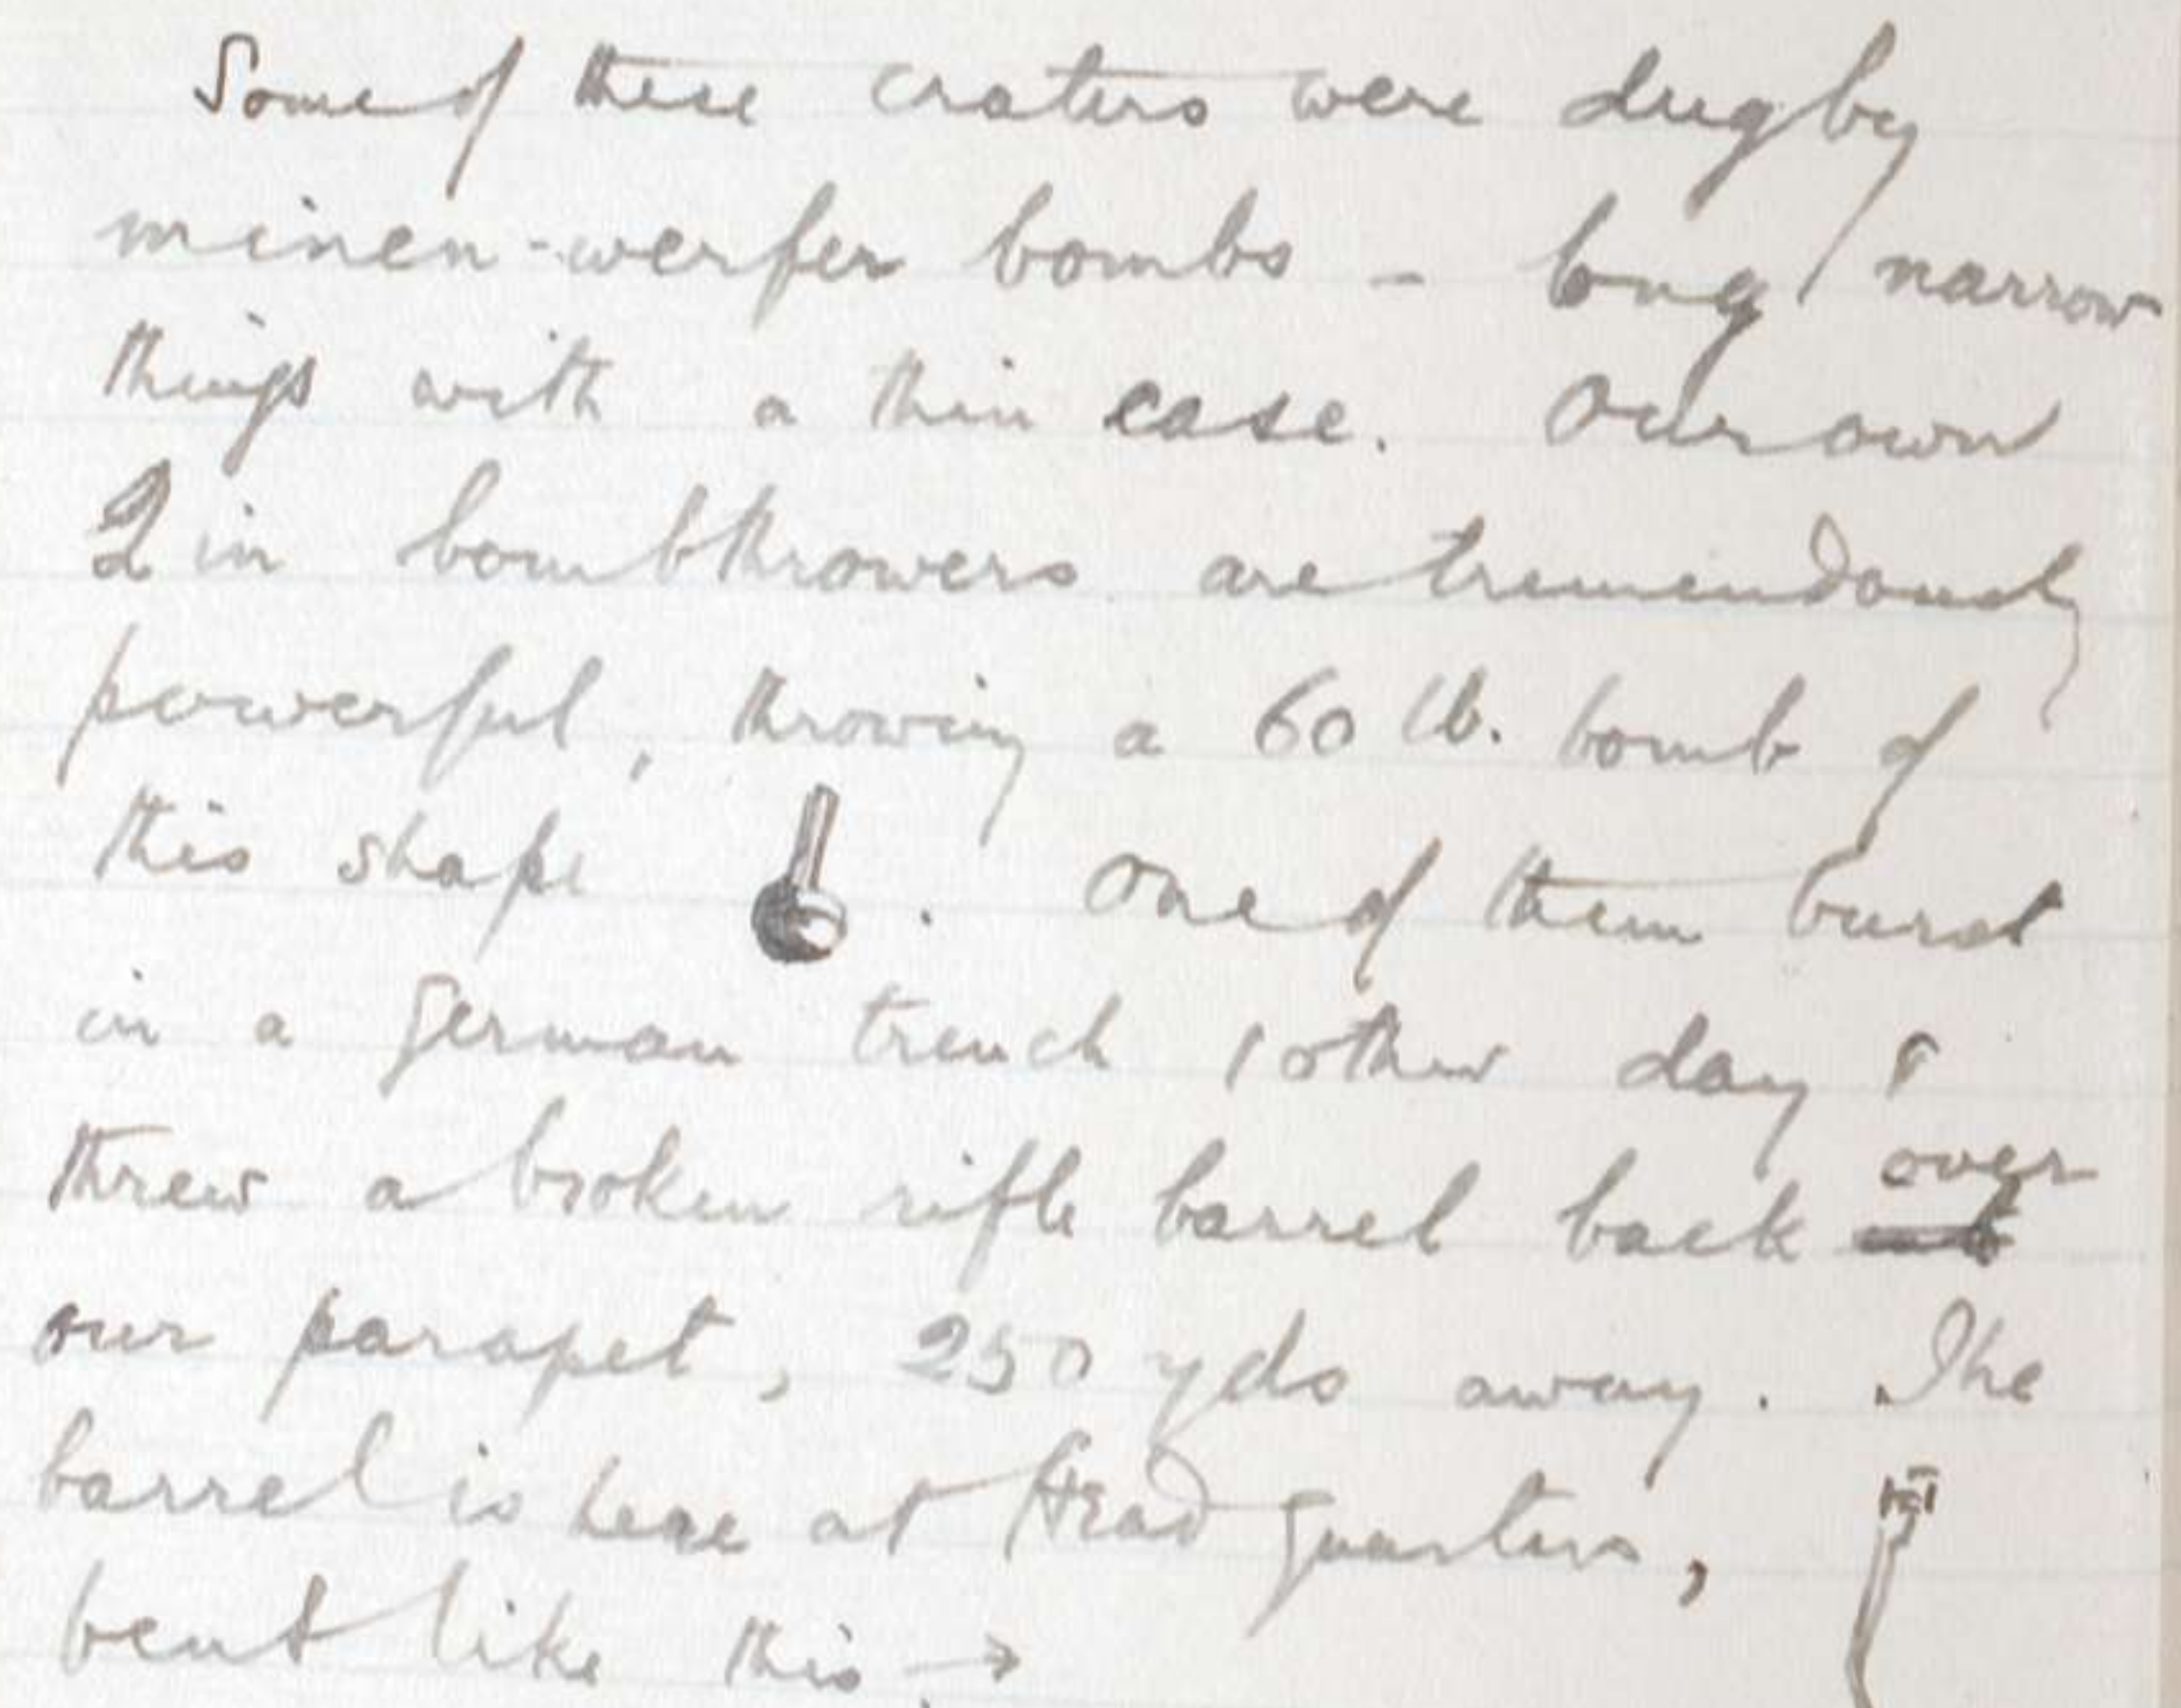 Some of these craters were dug by
minen-werfer bombs - long narrow
things with a thin case. Our own
2 in bomb throwers are tremendously
powerful, throwing a 60 lb. bomb of
this shape . One of them burst
in a German trench / other day &
threw a broken rifle barrel back over
our parapet, 250 yds away. The
barrel is here at Head quarters,
bent like this →